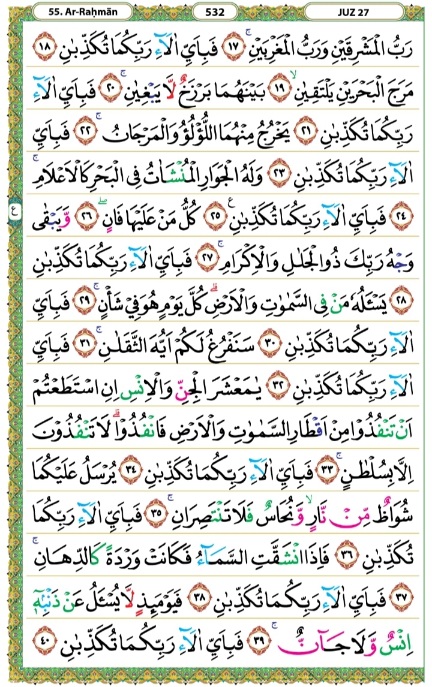 55. Ar-Raḥmān 532 JUZ 27
رَبُّ الْمَشْرِقَيْنِ وَرَبُّ الْمَغْرِبَيْنِۚ ١٧ فَبِاَيِّ اٰلَاۤءِ رَبِّكُمَا تُكَذِّبٰنِ ١٨
مَرَجَ الْبَحْرَيْنِ يَلْتَقِيٰنِۙ ١٩ بَيْنَهُمَا بَرْزَخٌ لَّا يَبْغِيٰنِۚ ٢٠ فَبِاَيِّ اٰلَاۤءِ
رَبِّكُمَا تُكَذِّبٰنِ ٢١ يَخْرُجُ مِنْهُمَا اللُّؤْلُؤُ وَالْمَرْجَانُۚ ٢٢ فَبِاَيِّ
اٰلَاۤءِ رَبِّكُمَا تُكَذِّبٰنِ ٢٣ وَلَهُ الْجَوَارِ الْمُنْشَاٰتُ فِى الْبَحْرِ كَالْاَعْلَامِۚ
٢٤ فَبِاَيِّ اٰلَاۤءِ رَبِّكُمَا تُكَذِّبٰنِ ࣖ ٢٥ كُلُّ مَنْ عَلَيْهَا فَانٍۖ ٢٦ وَّيَبْقٰى
ع
وَجْهُ رَبِّكَ ذُو الْجَلٰلِ وَالْاِكْرَامِۚ ٢٧ فَبِاَيِّ اٰلَاۤءِ رَبِّكُمَا تُكَذِّبٰنِ
٢٨ يَسْـَٔلُهٗ مَنْ فِى السَّمٰوٰتِ وَالْاَرْضِۗ كُلَّ يَوْمٍ هُوَ فِيْ شَأْنٍۚ ٢٩ فَبِاَيِّ
اٰلَاۤءِ رَبِّكُمَا تُكَذِّبٰنِ ٣٠ سَنَفْرُغُ لَكُمْ اَيُّهَ الثَّقَلٰنِۚ ٣١ فَبِاَيِّ
اٰلَاۤءِ رَبِّكُمَا تُكَذِّبٰنِ ٣٢ يٰمَعْشَرَ الْجِنِّ وَالْاِنْسِ اِنِ اسْتَطَعْتُمْ
اَنْ تَنْفُذُوْا مِنْ اَقْطَارِ السَّمٰوٰتِ وَالْاَرْضِ فَانْفُذُوْاۗ لَا تَنْفُذُوْنَ
اِلَّا بِسُلْطٰنٍۚ ٣٣ فَبِاَيِّ اٰلَاۤءِ رَبِّكُمَا تُكَذِّبٰنِ ٣٤ يُرْسَلُ عَلَيْكُمَا
شُوَاظٌ مِّنْ نَّارٍۙ وَّنُحَاسٌ فَلَا تَنْتَصِرَانِۚ ٣٥ فَبِاَيِّ اٰلَاۤءِ رَبِّكُمَا
تُكَذِّبٰنِ ٣٦ فَاِذَا انْشَقَّتِ السَّمَاۤءُ فَكَانَتْ وَرْدَةً كَالدِّهَانِۚ
٣٧ فَبِاَيِّ اٰلَاۤءِ رَبِّكُمَا تُكَذِّبٰنِ ٣٨ فَيَوْمَىِٕذٍ لَّا يُسْـَٔلُ عَنْ ذَنْۢبِهٖٓ
اِنْسٌ وَّلَا جَاۤنٌّۚ ٣٩ فَبِاَيِّ اٰلَاۤءِ رَبِّكُمَا تُكَذِّبٰنِ ٤٠